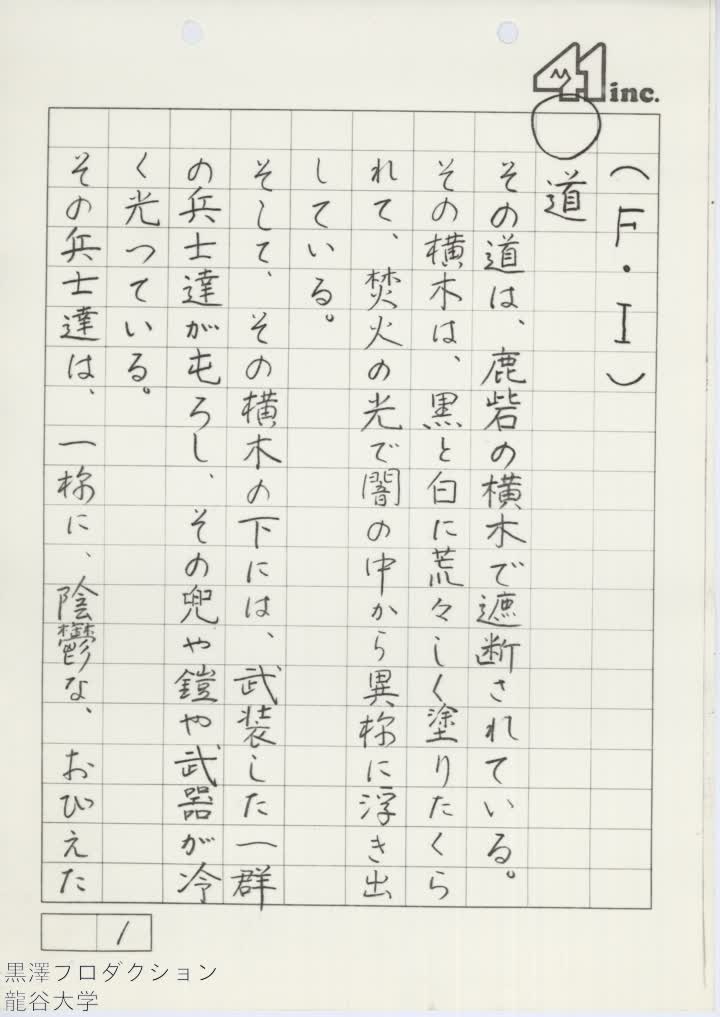 41 inc.
(F・I)
○道
その道は、鹿砦の横木で遮断されている。
その横木は、黒と白に荒々しく塗りたくら
れて、焚火の光で闇の中から異様に浮き出
している。
そして、その横木の下には、武装した一群
の兵士達が屯ろし、その兜や鎧や武器が冷
く光つている。
その兵士達は、一様に、陰鬱な、おびえた
1
黒澤プロダクション
龍谷大学